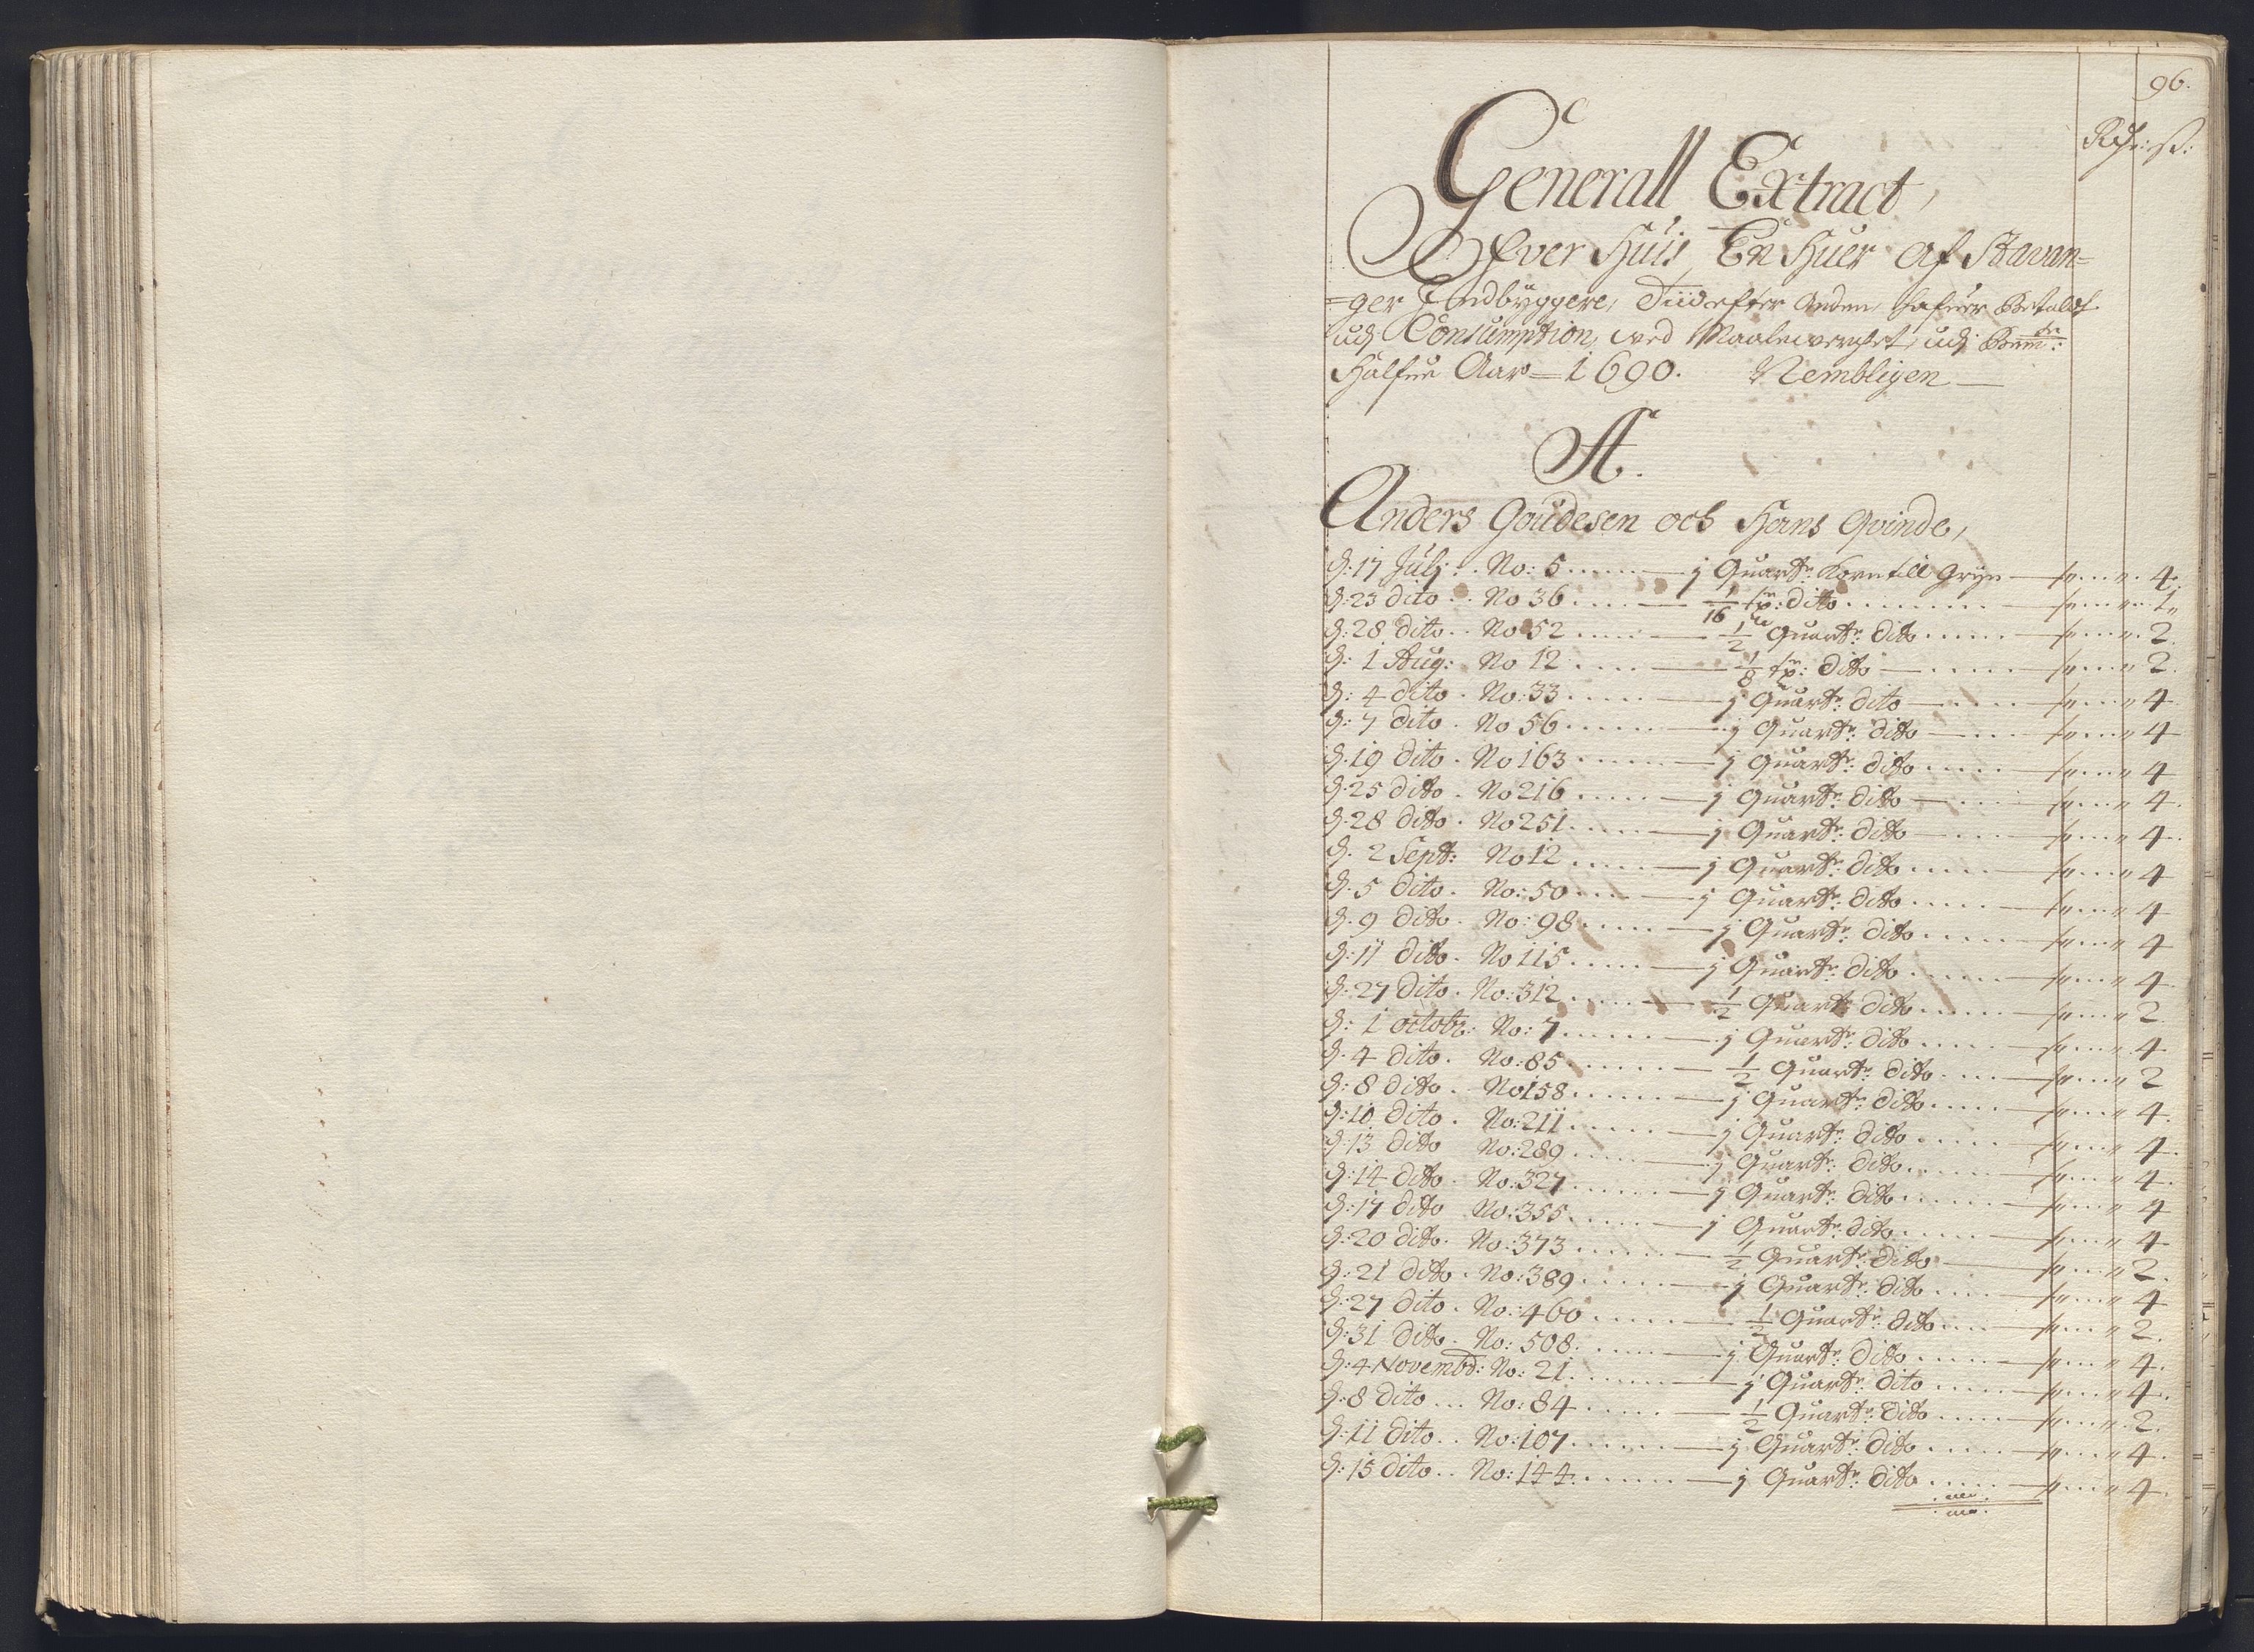 96.
Rdr: ß:
Generall Extract,
Ofver Huis En Huer af Stavan=
=ger Indbÿggere, Tiid efter anden, hafuer Betalt
udj Consumption, ved Maaleverchet, udj Bem:te
Halfue Aar = 1690. Nembligen
A.
Anders Goudesen och Hans Qvinde,
d: 17 Julj: No: 5 ..... j Quart: Korn till Grÿn ..... 4.
d: 23 dito .. No 36 ..... 1/16 tn: dito ..... 1
d: 28 dito .. No 52 ..... 1/2 Quart: dito ..... 2.
d: 1 Aug: No 12 ..... 1/8 tn: dito ..... 2.
d: 4 dito . No: 33 ..... j Quart: dito ..... 4
d: 7 dito . No 56 ..... j Quart: dito ..... 4
d. 19 dito . No 163 ..... j Quart: dito ..... 4
d. 25 dito . No 216 ..... j Quart: dito ..... 4.
d. 28 dito . No 251 ..... j Quart: dito ..... 4.
d. 2 Sept: No 12 ..... j Quart: dito ..... 4
d. 5 dito . No: 50 ..... j Quart: dito ..... 4
d. 9 dito . No: 98 ..... j Quart: dito ..... 4
d: 11 dito . No 115 ..... j Quart: dito ..... 4
d: 27 dito . No: 312 ..... 1/2 Quart: dito ..... 2
d: 1 octobr: No: 7 ..... j Quart: dito ..... 4
d. 4 dito . No: 85 ..... 1/2 Quart: dito ..... 2
d: 8 dito . No 158 ..... j Quart: dito ..... 4.
d: 10 dito . No: 211 ..... j Quart: dito ..... 4.
d: 13 dito No: 289 ..... j Quart: dito ..... 4.
d: 14 dito . No: 327 ..... j Quart: dito ..... 4
d: 17 dito No: 355 ..... j Quart: dito ..... 4
d: 20 dito . No: 373 ..... 1/2 Quart: dito ..... 2.
d: 21 dito . No: 389 ..... j Quart: dito ..... 4
d: 27 dito . No: 460 ..... 1/2 Quart: dito ..... 2.
d: 31 dito . No: 508 ..... j Quart: dito ..... 4.
d: 4 Novembr: No: 21 ..... j Quart: dito ..... 4.
d: 8 dito ... No: 84 ..... 1/2 Quart: dito ..... 2.
d: 11 dito .. No: 107 ..... j Quart: dito ..... 4.
d: 15 dito .. No: 144 ..... j Quart: dito ..... 4.